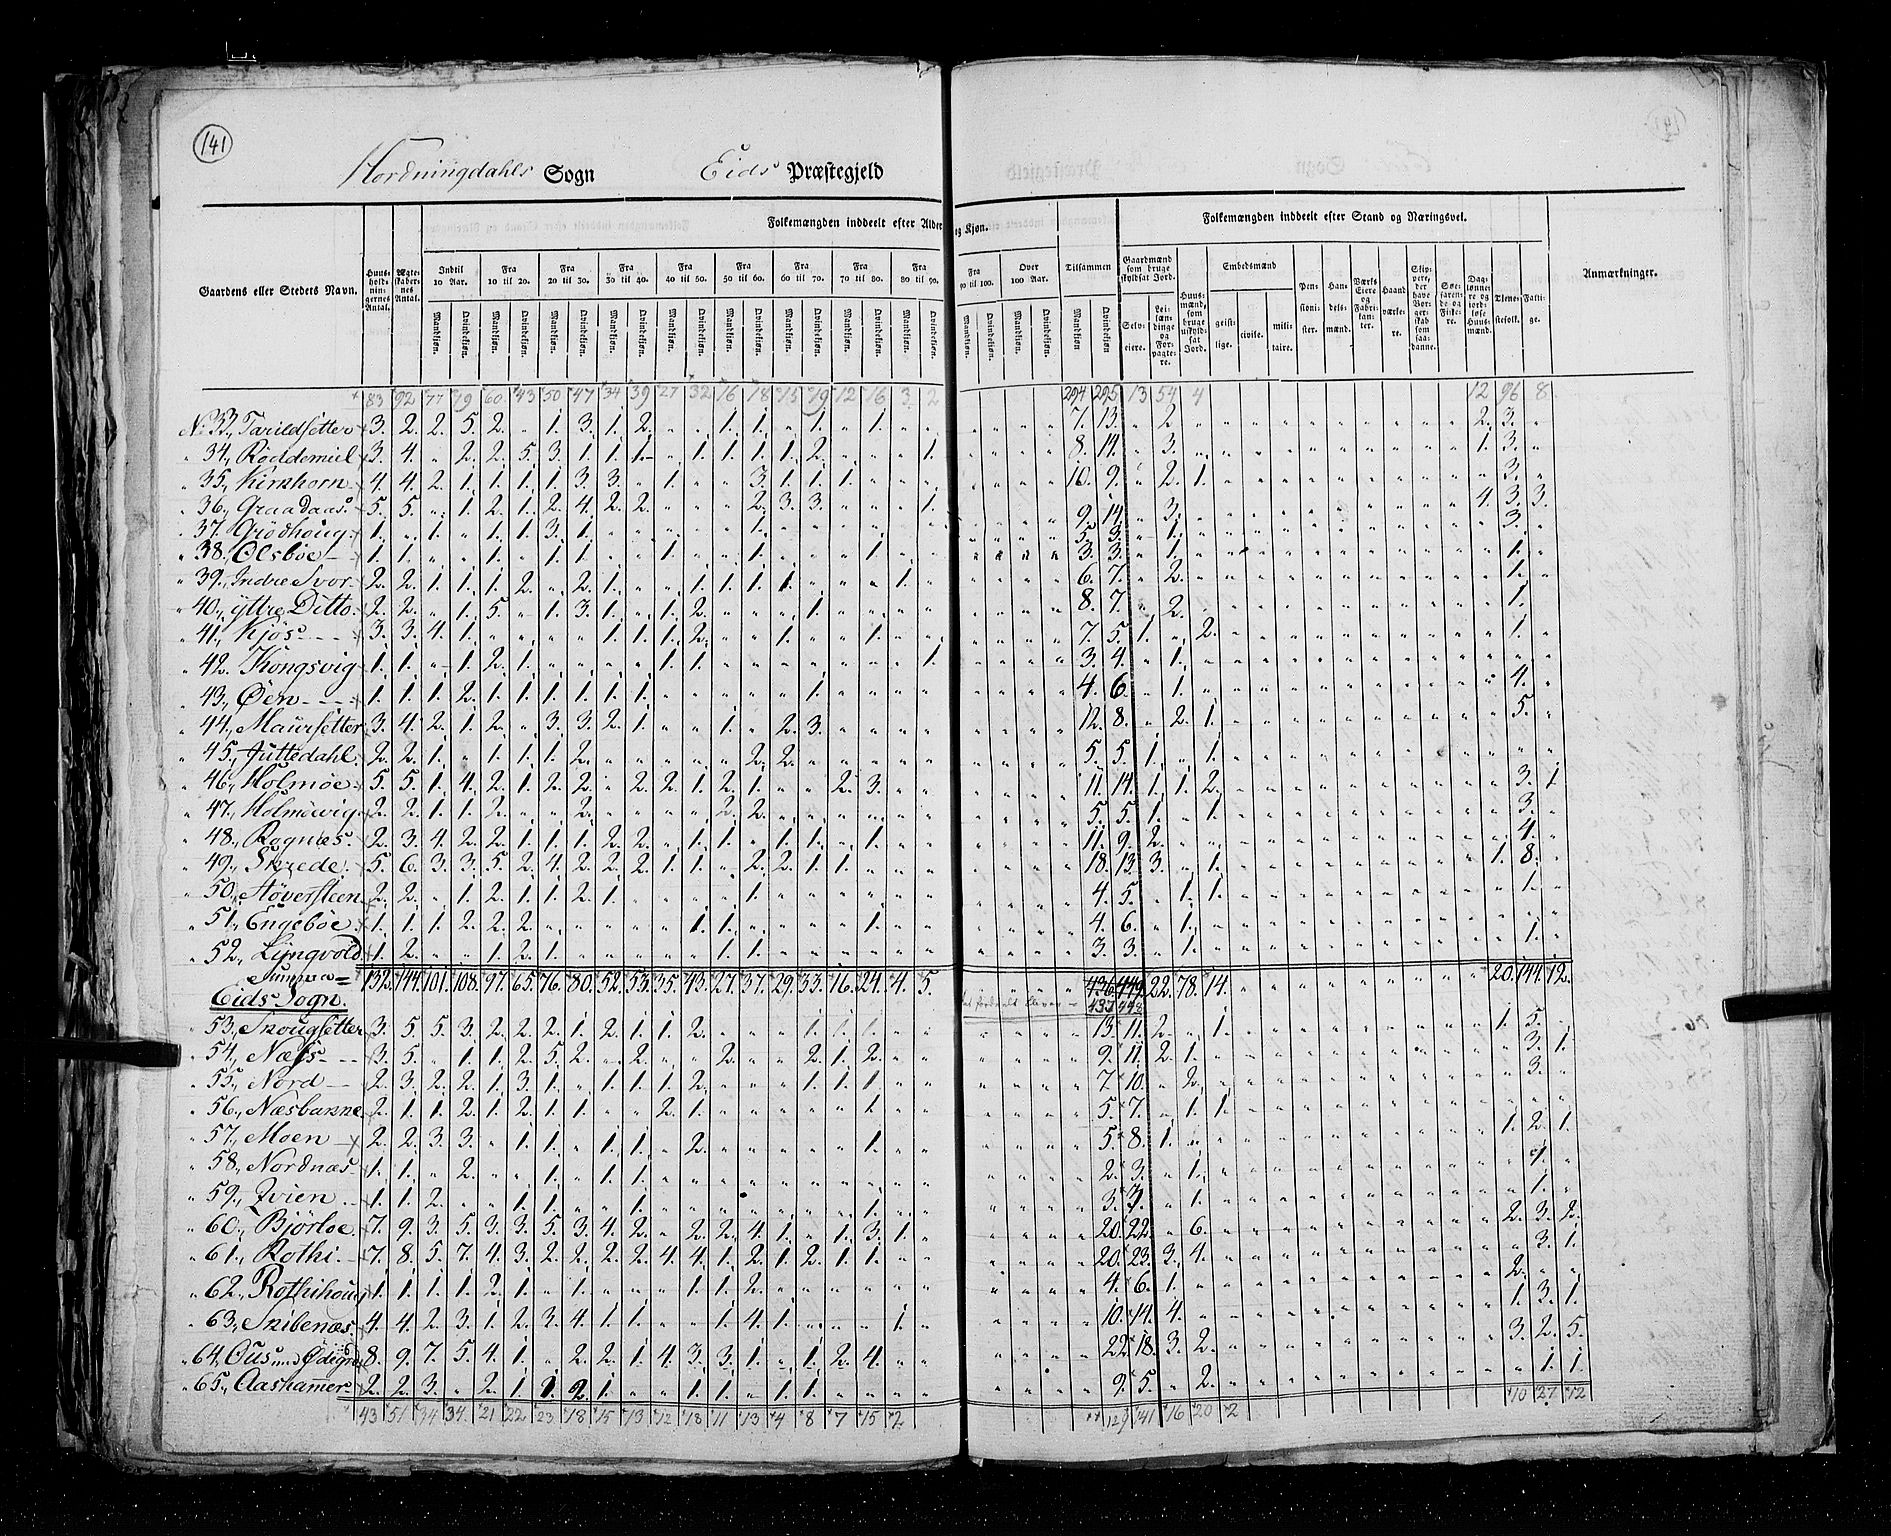 141
Hordningdahls Sogn Eids Præstegjeld
Folkemængden inddeelt efter Alder og Kjøn.
Folkemængden inddeelt efter Stand og Næringsvei.
Gaardens eller Stedets Navn.
Huusholdningernes Antal.
Ægteskabernes Antal.
Indtil 10 Aar.
Fra 10 til 20.
Fra 20 til 30.
Fra 30 til 40.
Fra 40 til 50.
Fra 50 til 60.
Fra 60 til 70.
Fra 70 til 80.
Fra 80 til 90.
Fra 90 til 100.
Over 100 Aar.
Tilsammen
Mandkjøn. Qvindekjøn.
Gaardmænd som bruge skyldsat Jord.
Selveiere.
Leilændinge og Forpagtere.
Huusmænd, som bruge uskyldsat Jord.
Embedsmænd
geistlige. civile. militaire.
Pensionister.
Handelsmænd.
Værks Eiere og Fabrikanter.
Haandværkere.
Skippere, der have Borgerskab som saadanne.
Søefarende og Fiskere.
Daglønnere og jordløse Huusmænd.
Tienestefolk.
Fattige.
Anmærkninger.
83 92 77 79 60 43 50 47 34 39 27 32 16 18 15 19 12 16 3 2 294 295 13 54 4 12 96 8
No 33, Tarildsetter 3. 2. 2. 5. 2. „ 1. 3. 1. 2. „ „ 1. 1. „ 1. „ 1. „ „ 7. 13. „ 2. „ 2. 3. „
„ 34, Røddemiel 3. 4. „ 2. 2. 5. 3. 1. 1. 1. „ 1. 1. 1. 1. 2. „ „ „ 1. 8. 14. „ 3. „ 1. 3. „
„ 35, Kirkhorn 4. 4. 2. 1. 1. 1. 1. 3. 3. „ 1. „ „ 3. 1. 1. 1. „ „ „ 10. 9. „ 2. 1. „ 3. „
„ 36, Graadaas. 5. 5. „ 1. 2. 1. 2. 4. 2. 2. „ „ „ 2. 3. 3. „ „ „ 1. 9. 14. „ 3. „ 4. 3. 3.
„ 37. Grødhoug 1. „ 1. „ 1. 1. 3. 1. „ „ „ „ „ 1. „ „ „ „ „ „ 5. 3. „ 1. „ „ 3. „
„ 38. Olsbøe 1. 1. „ „ 1. „ 1. 1. „ „ 1. „ „ 1. „ „ „ 1. „ „ 3. 3. „ 1. „ „ 1. „
„ 39, Indre Svor 2. 2. 1. 1. 1. 2. „ 2. 1. „ „ 1. 1. 1. 1. „ „ „ 1. „ 6. 7. „ 2. „ „ 1. „
„ 40, yttre Ditto 2. 2. „ 1. 5. „ 1. 3. 1. „ 1. 2. „ „ „ 1. „ „ „ „ 8. 7. „ 2. „ „ 1. „
„ 41, Kjøs 3. 3. 4. 1. „ „ „ „ 1. 1. 1. 2. „ „ 1. „ „ 1. „ „ 7. 5. 1. „ 2. „ 1. „
„ 42. Kongsvig 1. 1. „ 1. 2. 1. „ „ „ „ 1. 1. „ „ „ „ „ „ „ 1. 3. 4. „ 1. „ „ „ „
„ 43, Øen 1. 1. 1. 2. 1. 1. 1. 1. 1. 1. „ „ „ „ „ 1. „ „ „ „ 4. 6. „ 1. „ „ 4. „
„ 44, Maursetter 3. 4. 2. 1. 2. „ 3. 3. 2. 1. „ „ 1. „ 2. 3. „ „ „ „ 12. 8. „ 2. 1. „ 5. „
„ 45, Juttedahl 2. 2. 1. „ 1. 1. 1. 2. „ „ „ „ „ 2. 2. „ „ „ „ „ 5. 5. 1. „ 1. „ „ „
„ 46, Holmøe 5. 5. 1. 4. 2. 1. 2. 2. „ 2. 2. 1. 2. 1. „ „ 2. 3. „ „ 11. 14. 1. 1. 2. „ 3. 1
„ 47, Holmøevig 2. 2. 1. 1. 2. „ „ 2. „ „ „ „ 2. 2. „ „ „ „ „ „ 5. 5. 1. „ 1. „ 3. „
„ 48, Rognæs 2. 3. 4. 2. 2. 1. 1. 1. 2. 2. „ 1. 1. „ 1. 1. „ 1. „ „ 11. 9. 2. „ „ „ 4. „
„ 49, Skrede 5. 6. 3. 3. 5. 2. 4. 2. 2. 2. 1. 1. „ 2. 2. 1. 1. „ „ „ 18. 13. 3. „ 1. 1. 8. „
„ 50, Støversteen 2. 2. „ 1. 2. 1. 1. 2. 1. „ „ „ „ 1. „ „ „ „ „ „ 4. 5. „ 1. 1. „ 1. „
„ 51, Engebøe 1. 1. 1. 2. 2. 2. „ „ „ „ „ 1. 1. „ „ „ „ 1. „ „ 4. 6. „ 1. „ „ „ „
„ 52, Lyngvold 1. 2. „ „ 1. 2. 1. „ „ „ „ „ 1. 1. „ „ „ „ „ „ 3. 3. „ 1. „ „ 1. „
Summa 132. 144. 101. 108. 97. 65. 76. 80. 52. 53. 35. 43. 27. 37. 29. 33. 16. 24. 4. 5. 436 449 22. 78. 14. 20. 144. 12.
437 448
Eids Sogn.
„ 53, Skougsetter 3. 5. 5. 3. 2. 2. 2. 1. 2. 1. 1. 2. „ „ „ 1. 1. 1. „ „ 13. 11. 2. „ 1. 1. 5. „
„ 54, Næs 3. 5. „ 1. 1. 2. 5. 2. „ 2. „ „ 2. „ „ 2. 1. 2. „ „ 9. 11. 2. 1. „ „ 3. 1.
„ 55, Nord 2. 3. 2. 2. 1. 3. 1. „ 1. 1. 1. 2. „ „ „ 1. 1. 1. „ „ 7. 10. „ 2. „ „ 3. „
„ 56, Næsbakne 2. 1. 1. 2. 1. 2. 1. 1. „ „ 2. 1. „ „ „ „ „ 1. „ „ 5. 7. „ 1. 1. „ „ „
„ 57, Moen 2. 2. 3. 3. „ 1. 1. „ 1. 1. „ 2. „ „ „ „ „ 1. „ „ 5. 8. 1. „ „ 1. 2. 1.
„ 58, Nordnæs 1. 1. „ 2. „ „ 1. „ 1. 1. „ „ „ „ „ „ „ „ „ „ 2. 3. „ 1. „ „ 1. „
„ 59, Qvien 1. 1. 2. „ „ 1. 1. „ „ 1. „ „ „ „ „ „ „ 1. „ „ 3. 3. „ 1. „ „ 1. „
„ 60, Bjørloe 7. 9. 3. 5. 3. 3. 5. 3. 4. 2. „ 2. 2. 4. 1. „ 1. 3. 1. „ 20. 22. „ 6. „ 2. 3. 2.
„ 61, Rothi 7. 8. 5. 7. 4. 3. 2. 2. 2. 2. 4. 4. 1. 2. 1. 2. 1. 1. „ „ 20. 23. 3. 4. „ „ 3. 1.
„ 62, Rothihoug 1. 1. 1. 1. 2. 1. „ 1. „ „ „ 1. 1. 2. „ „ „ „ „ „ 4. 6. 1. „ „ 2. „ „
„ 63, Skibenæs 4. 4. 2. 3. 1. 2. 3. 4. 1. 1. „ „ 1. 4. 1. „ „ „ 1. „ 10. 14. 4. „ „ 1. 3. 1.
„ 64, Ous und Ødegrd 8. 9. 7. 5. 4. 1. „ 2. 2. 1. 4. 3. 3. 1. „ 1. 2. 4. „ „ 22. 18. 3. 2. „ 3. 2. 5.
„ 65, Aashammer 2. 2. 3. „ 2. 1. 1. 2. 1. „ „ 1. 1. „ 1. 1. „ „ „ „ 9. 5. „ 2. „ „ 1. 1.
43 51 34 34 21 22 23 18 15 13 12 18 11 13 4 8 7 15 2 129 141 16 20 2 10 27 12